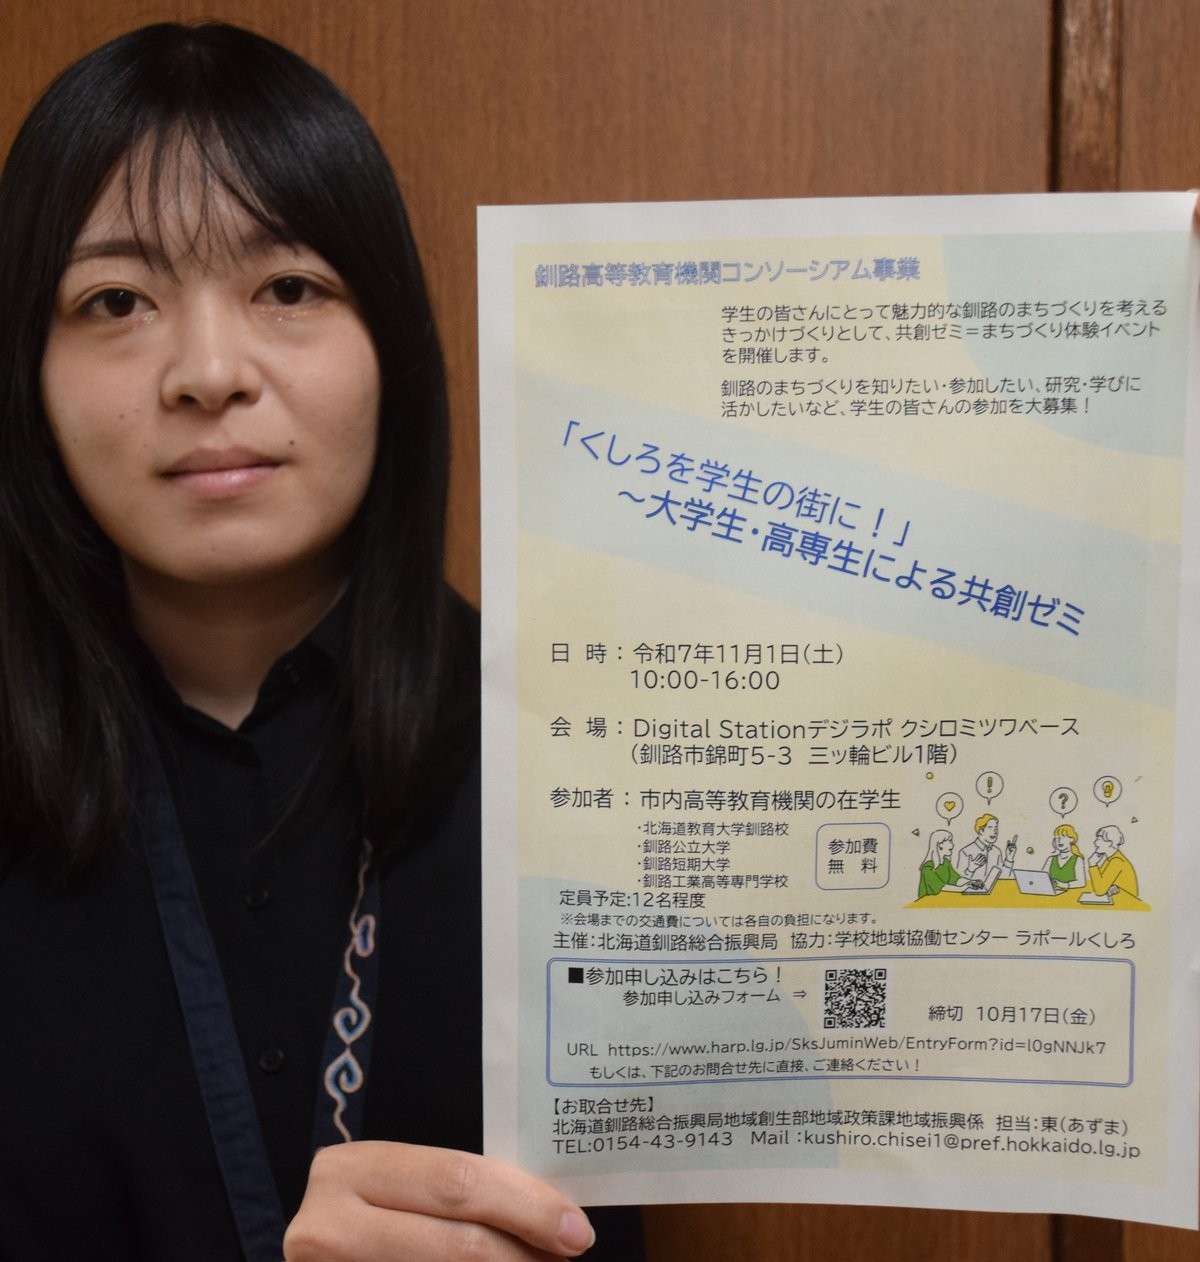 釧路高等教育機関コンソーシアム事業
学生の皆さんにとって魅力的な釧路のまちづくりを考える
きっかけづくりとして、共創ゼミ=まちづくり体験イベント
を開催します。
釧路のまちづくりを知りたい・参加したい、研究・学びに
活かしたいなど、学生の皆さんの参加を大募集！
「くしろを学生の街に！」
～大学生・高専生による共創ゼミ
日 時：令和7年11月1日(土)
10:00-16:00
会 場：Digital Stationデジラボ クシロミツワベース
(釧路市錦町5-3 三ッ輪ビル1階)
参加者：市内高等教育機関の在学生
・北海道教育大学釧路校
・釧路公立大学
・釧路短期大学
・釧路工業高等専門学校
参加費
無 料
定員予定:12名程度
※会場までの交通費については各自の負担になります。
主催:北海道釧路総合振興局 協力:学校地域協働センター ラポールくしろ
■参加申し込みはこちら！
参加申し込みフォーム ⇒
締切 10月17日(金)
URL https://www.harp.lg.jp/SksJuminWeb/EntryForm?id=l0gNNJk7
もしくは、下記のお問合せ先に直接、ご連絡ください！
【お取合せ先】
北海道釧路総合振興局地域創生部地域政策課地域振興係 担当:東(あずま)
TEL:0154-43-9143 Mail:kushiro.chisei1@pref.hokkaido.lg.jp